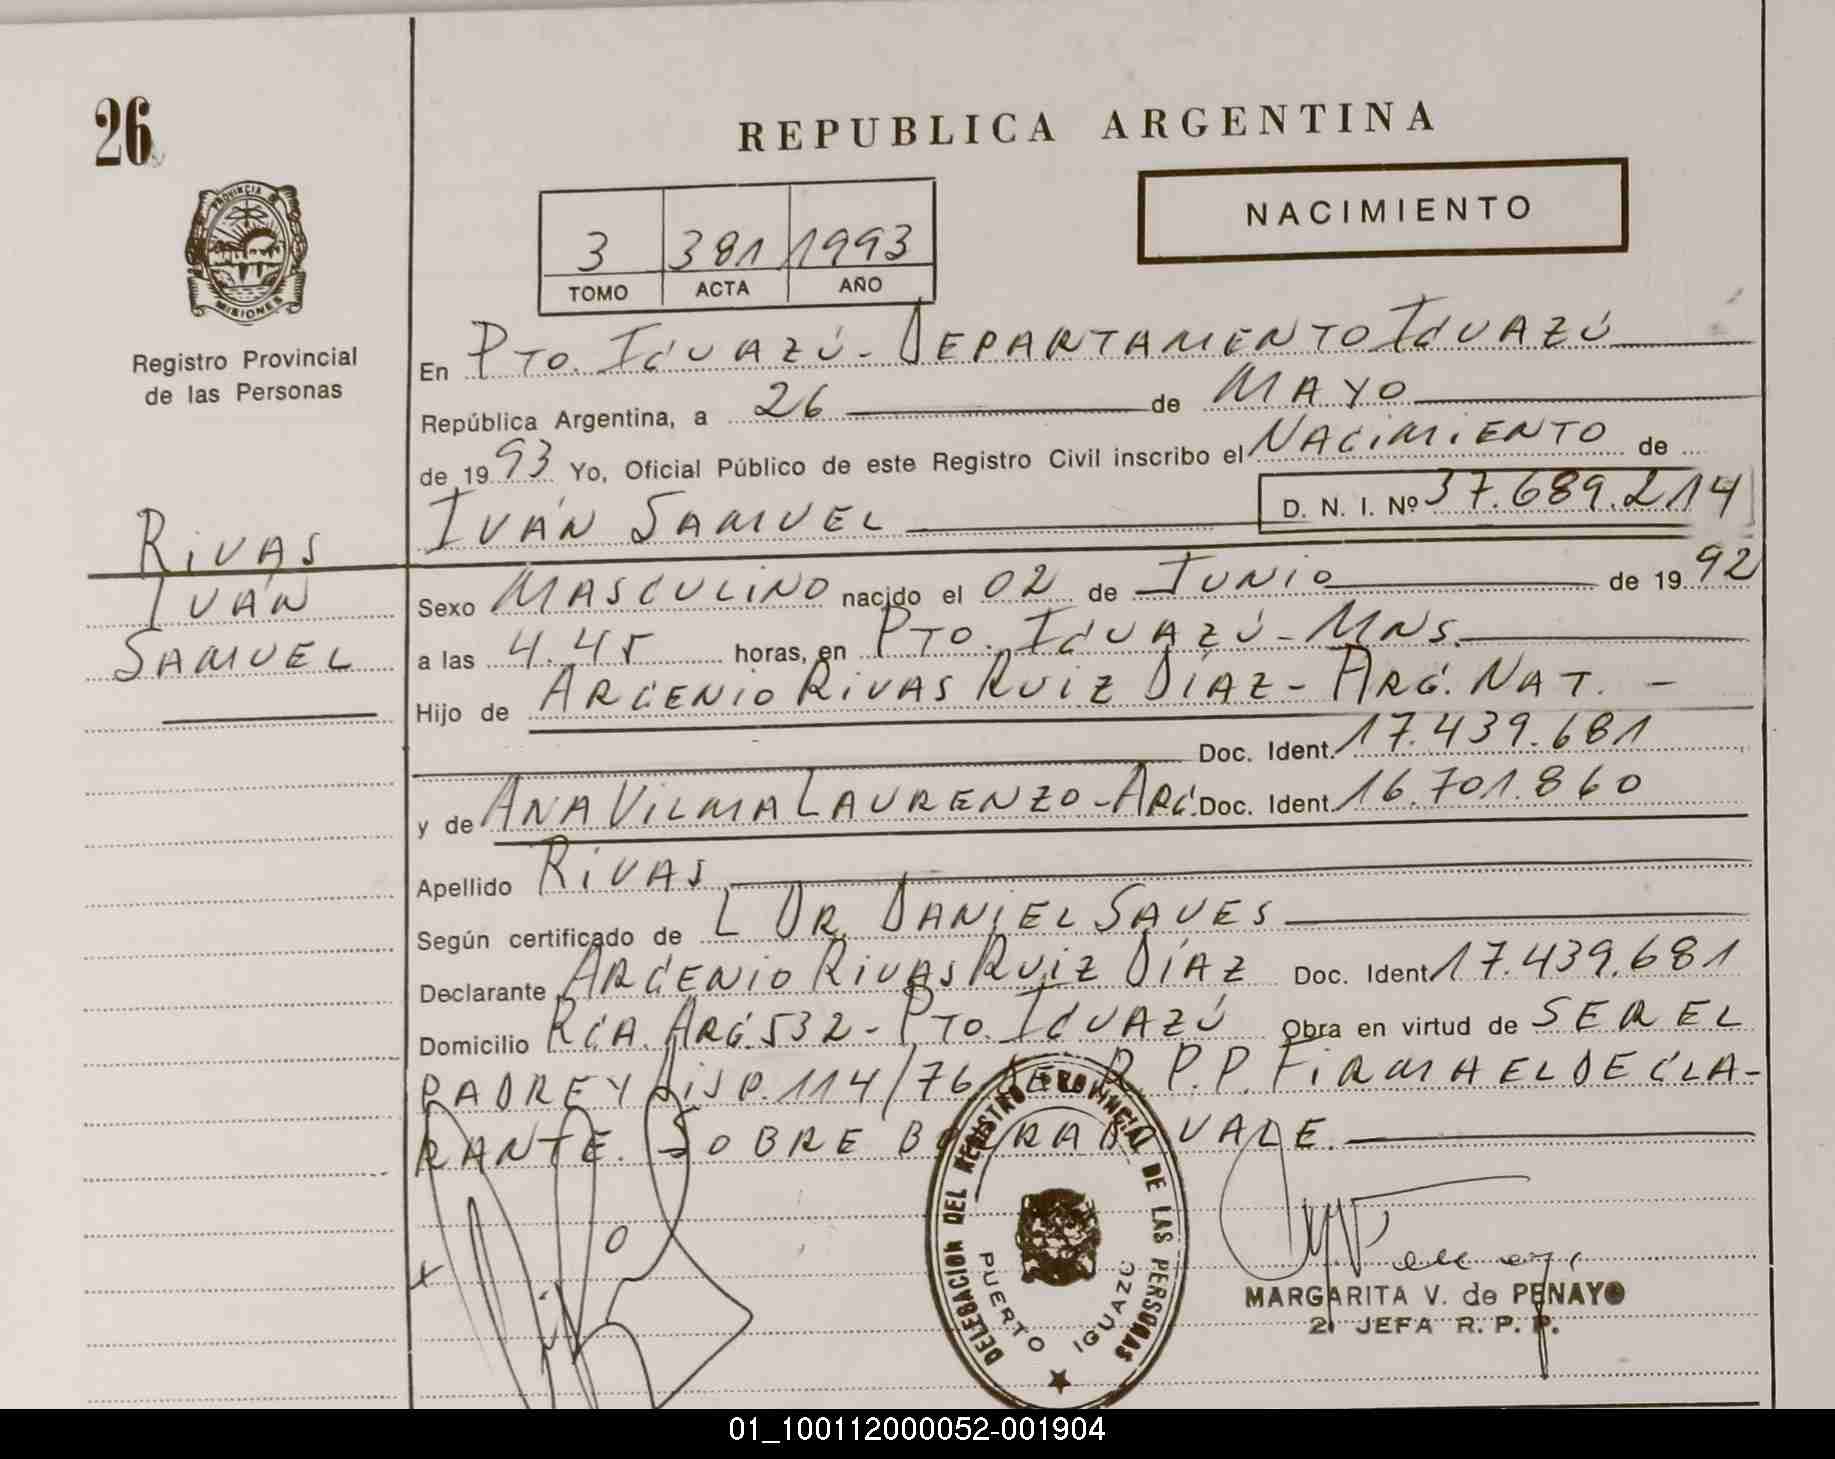 26
REPUBLICA ARGENTINA
NACIMIENTO
3 381 1993
TOMO ACTA AÑO
PROVINCIA DE
MISIONES
Registro Provincial
de las Personas
En PTO. IGUAZÚ - DEPARTAMENTO IGUAZÚ
República Argentina, a 26 de MAYO
de 1993 Yo, Oficial Público de este Registro Civil inscribo el NACIMIENTO de
IVÁN SAMUEL D. N. I. Nº 37.689.214
RIVAS
IVÁN
SAMUEL
Sexo MASCULINO nacido el 02 de JUNIO de 1992
a las 4.45 horas, en PTO. IGUAZÚ - MNS.
Hijo de ARGENIO RIVAS RUIZ DÍAZ - ARG. NAT. -
Doc. Ident. 17.439.681
y de ANA VILMA LAURENZO - ARG. Doc. Ident. 16.701.860
Apellido RIVAS
Según certificado de L DR. DANIEL SAVES
Declarante ARGENIO RIVAS RUIZ DÍAZ Doc. Ident. 17.439.681
Domicilio RCA. ARG. 532 - PTO. IGUAZÚ Obra en virtud de SER EL
PADRE Y DISP. 114/76 DEL R. P. P. FIRMA EL DECLA-
RANTE. SOBRE BORRADO VALE.
DELEGACION DEL REGISTRO PROVINCIAL DE LAS PERSONAS
PUERTO IGUAZU
MARGARITA V. de PENAYO
2ª JEFA R. P. P.
01_100112000052-001904